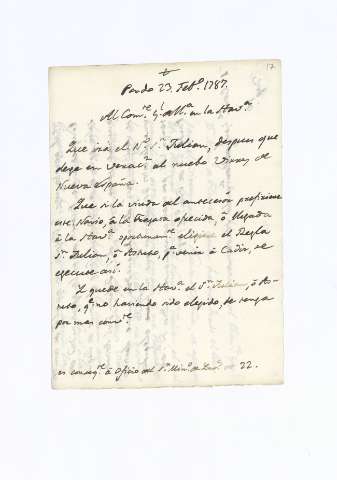 17
+
Pardo 23. Feb.º 1787.
Al Com.te G.l de M.a en la Hav.a
Que vea el N.o S.n Julian, despues que
dege en Verac.z al nuebo Virrey de
Nueva España.
Que si la viuda del antecesor prefiriese
ese Navio, à la Fragata ofrecida ò llegada
à la Hav.a oportunam.te eligiese el Regla
S.n Julian, ò Astuto p.a venir à Cadiz, se
egecute asi.
Y quede en la Hav.a el S.n Julian, ò As-
tuto, q.e no haviendo sido elegido, se tenga
por mas conv.te
es conseq.te à oficio del S.r Min.o de Ind.s de 22.